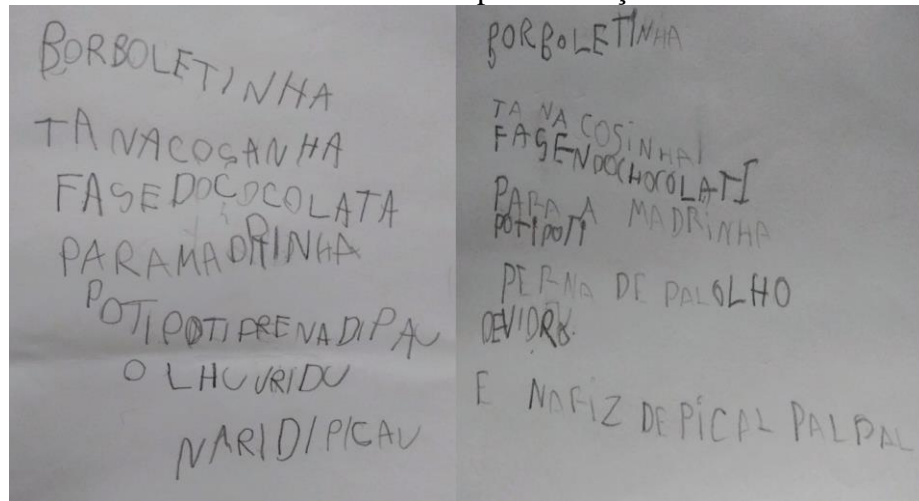 BORBOLETINHA
TA NACOSANHA
FASEDOCOCOLATA
PARAMADRINHA
POTIPOTIPRENADIPAU
OLHUVRIDU
NARIDIPICAU
BORBOLETINHA
TA NA COSINHA
FASENDOCHOCOLATI
PARA A MADRINHA
POTIPOTI
PERNA DE PALOLHO
DEVIDRO.
E NARIZ DE PICAL PALPAL